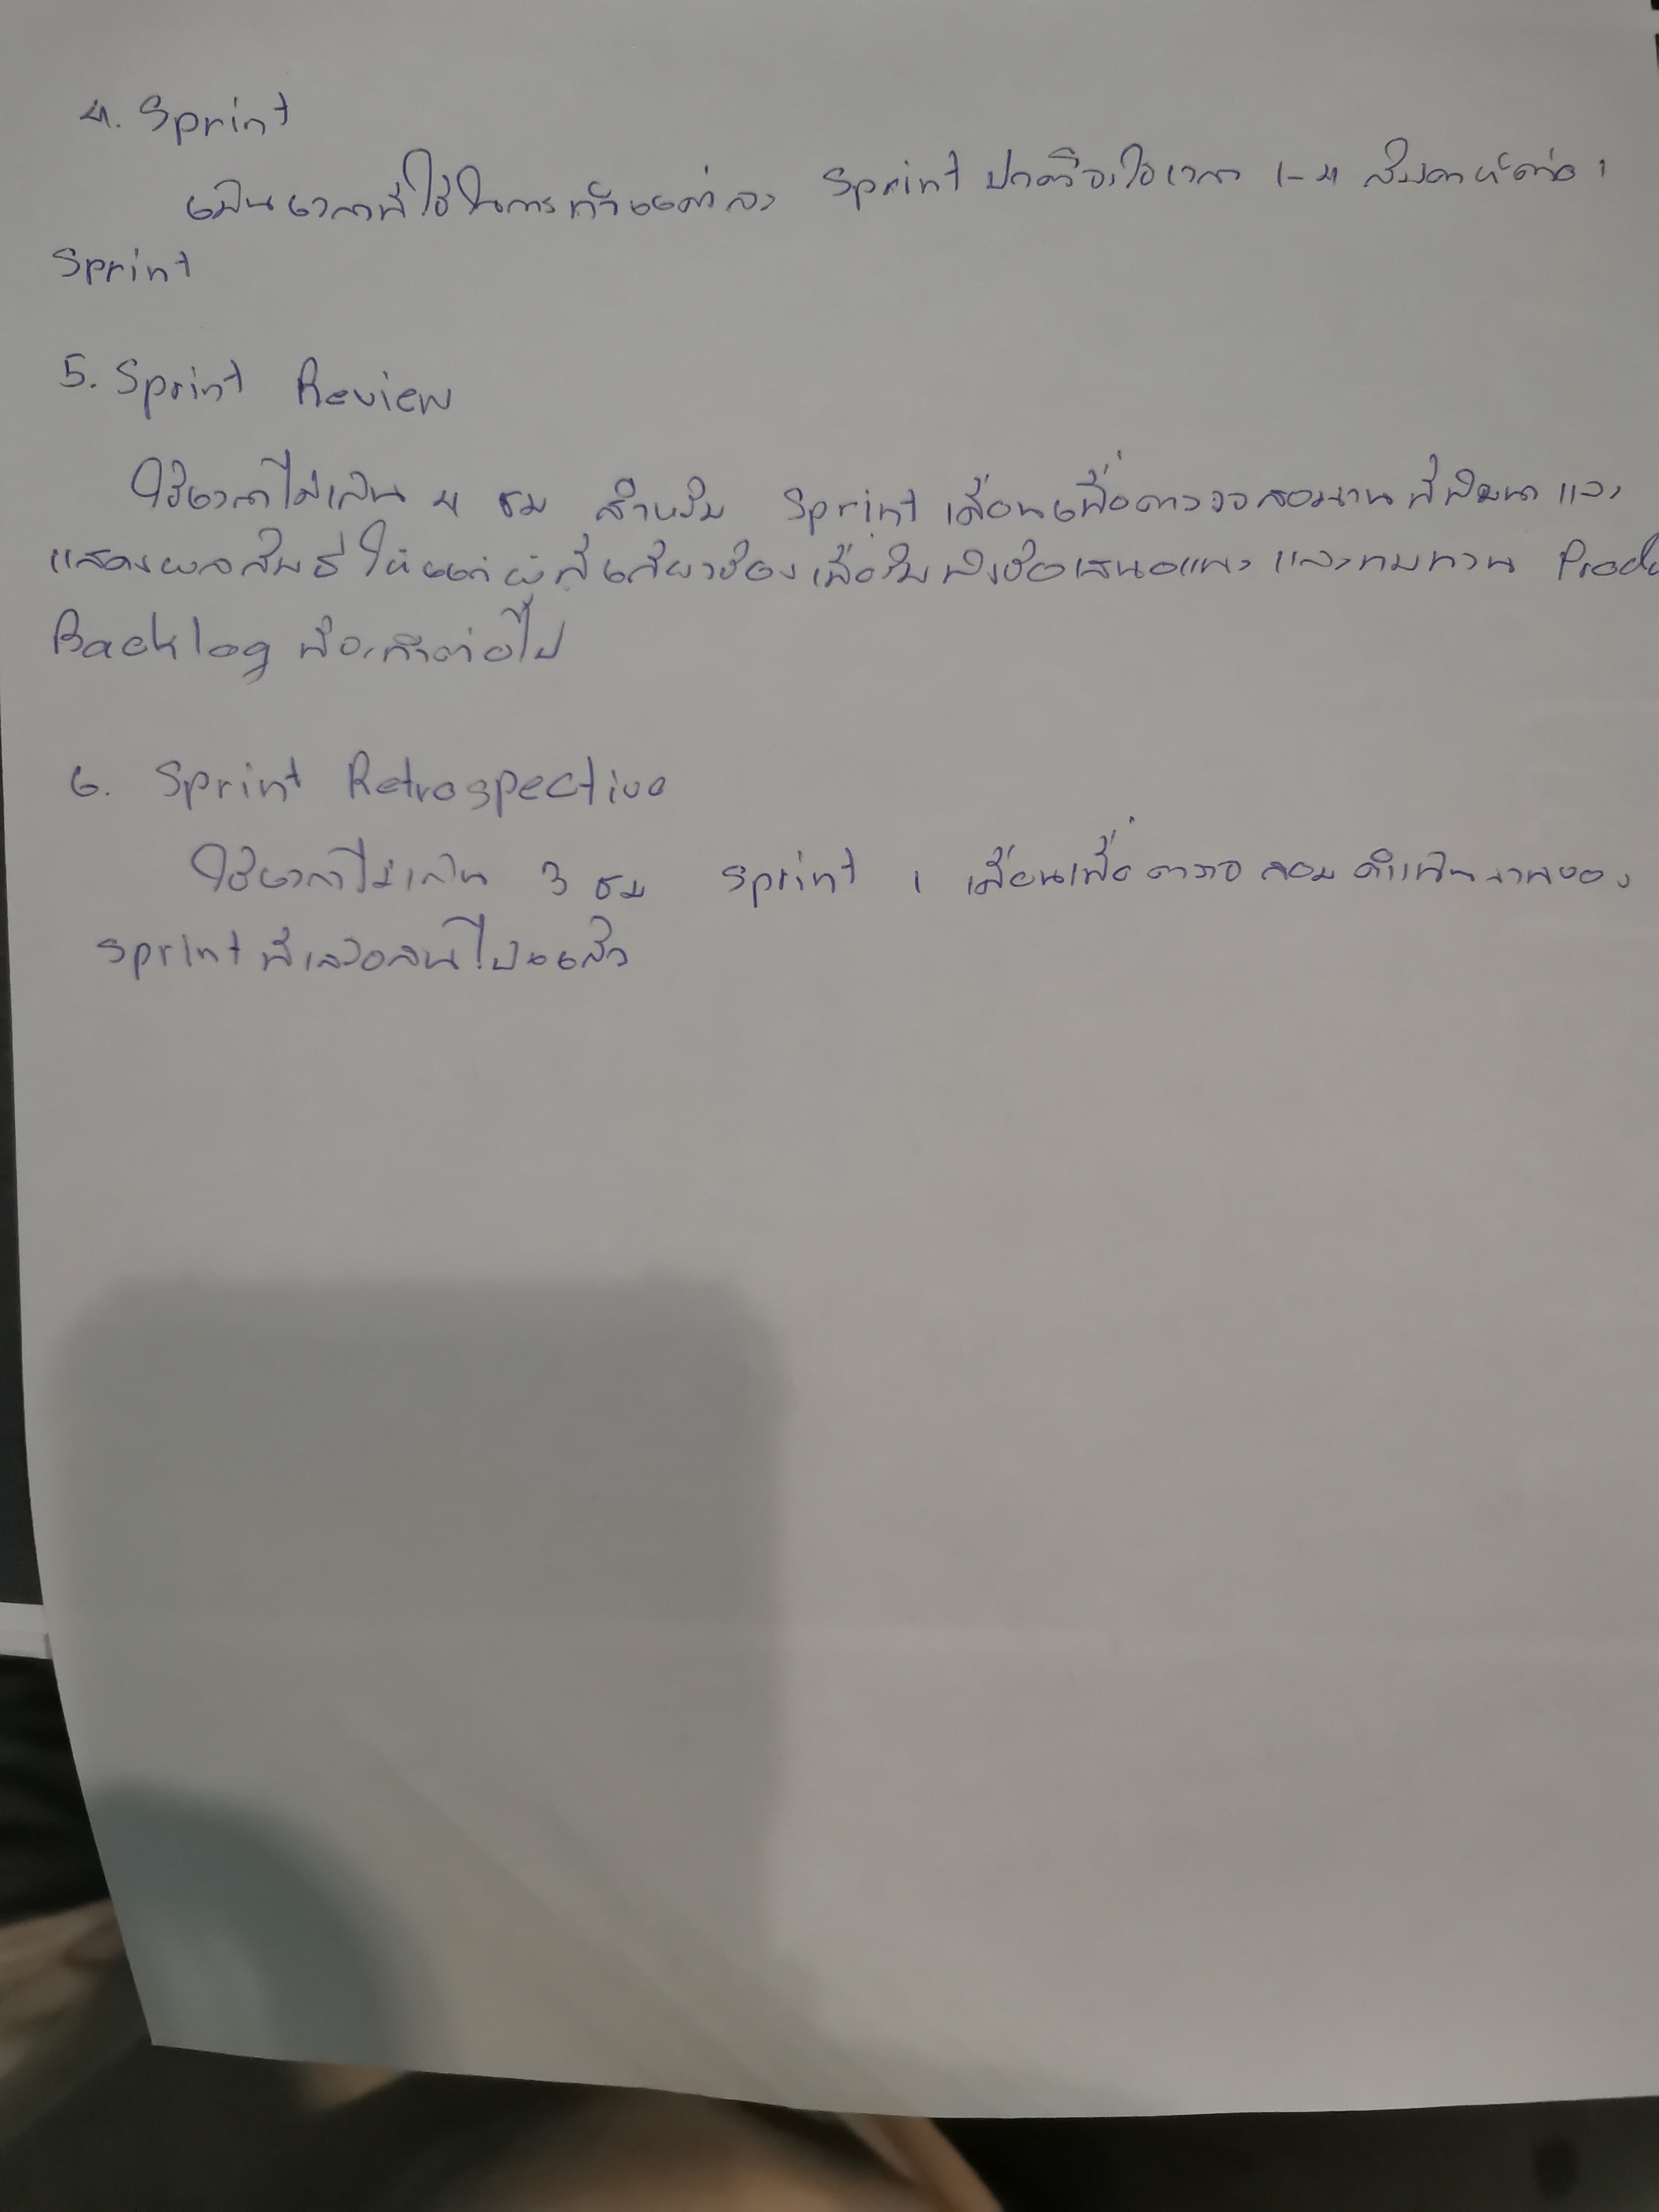 4. Sprint
เป็นเวลาที่ใช้ในการทำแต่ละ Sprint ปกติจะใช้เวลา 1-4 สัปดาห์ต่อ 1
Sprint
5. Sprint Review
ใช้เวลาไม่เกิน 4 ชม สำหรับ Sprint เดือนเพื่อตรวจสอบงานที่พัฒนา และ
แสดงผลลัพธ์ ให้แก่ผู้ที่เกี่ยวข้องเพื่อรับฟังข้อเสนอแนะ และทบทวน Produ
Backlog ที่จะทำต่อไป
6. Sprint Retrospective
ใช้เวลาไม่เกิน 3 ชม Sprint 1 เดือนเพื่อ ตรวจ สอบ ดำเนินงานของ
Sprint ที่เสร็จสิ้นไปแล้ว